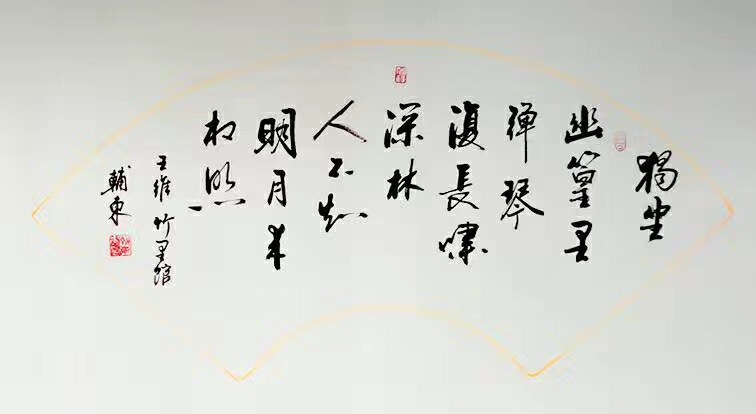 獨坐
幽篁里
彈琴
復長嘯
深林
人不知
明月来
相照
王维竹里馆
輔東